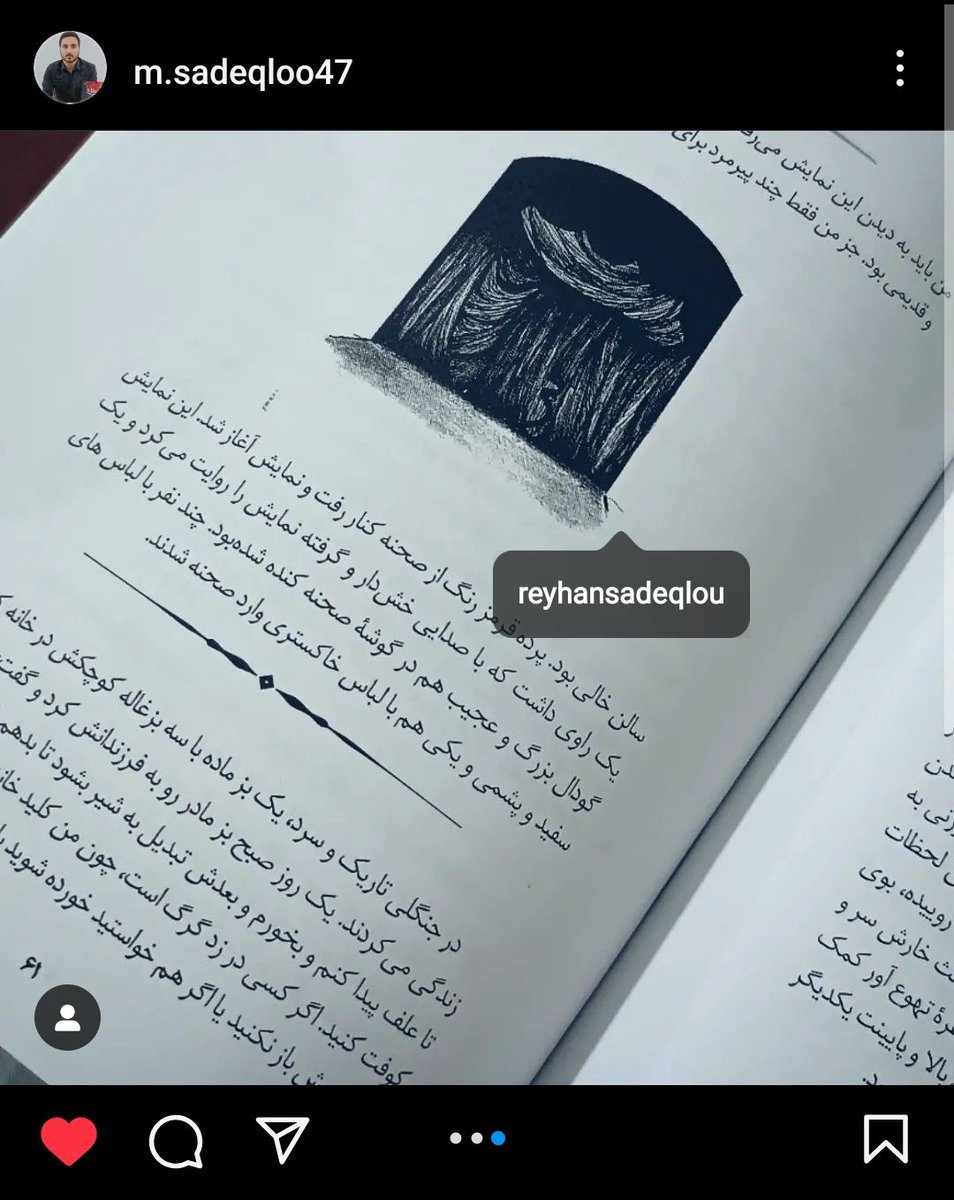 m.sadeqloo47
من باید به دیدن این نمایش می‌رف
و قدیمی بود. جز من فقط چند پیرمرد برای
reyhansadeqlou
سالن خالی بود. پرده قرمز رنگ از صحنه کنار رفت و نمایش آغاز شد. این نمایش
یک راوی داشت که با صدایی خش‌دار و گرفته نمایش را روایت می کرد و یک
گودال بزرگ و عجیب هم در گوشهٔ صحنه کنده شده‌بود. چند نفر با لباس های
سفید و پشمی و یکی هم با لباس خاکستری وارد صحنه شدند.
در جنگلی تاریک و سرد، یک بز ماده با سه بزغاله کوچکش در خانه
زندگی می کردند. یک روز صبح بز مادر رو به فرزندانش کرد و گفت
تا علف پیدا کنم و بخورم و بعدش تبدیل به شیر بشود تا بدهم
کوفت کنید. اگر کسی در زد گرگ است، چون من کلید
باز نکنید یا اگر هم خواستید خورده شوید
۶۱
لحظات
روییده، بوی
خارش سر و
تهوع آور کمک
بالا و پایینت یکدیگر